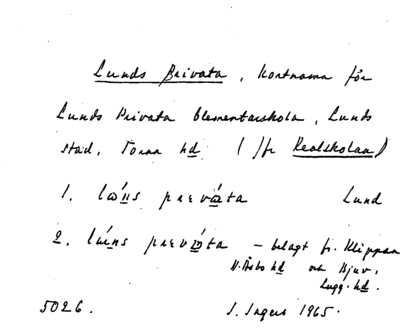 Lunds Privata, kortnamn för
Lunds Privata Elementarskola, Lunds
stad, Torna hd (jfr Realskolan)
1. lώn̲s prevά̲ta Lund
2. lún̲s prevά̲ta – belagt fr. Klippan
N. Åsbo hd och Bjuv,
Lugg. hd.
5026. I. Ingers 1965.